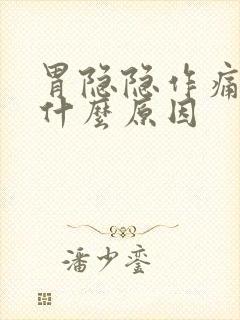 胃隐隐作痛
什麼原因
潘少銮